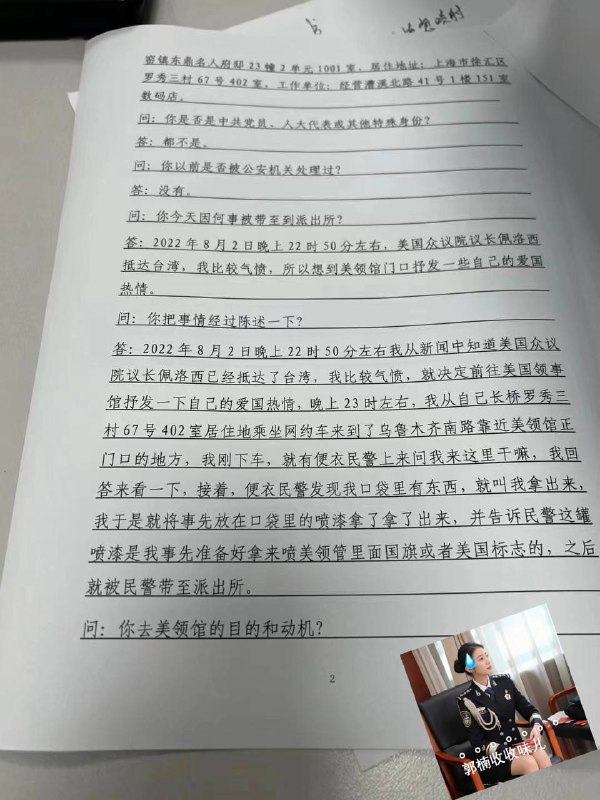 密镇东鼎名人府邸 23 幢 2 单元 1001 室，居住地址：上海市徐汇区
罗秀三村 67 号 402 室，工作单位：经营漕溪北路 41 号 1 楼 151 室
数码店。
问：你是否是中共党员、人大代表或其他特殊身份？
答：都不是。
问：你以前是否被公安机关处理过？
答：没有。
问：你今天因何事被带至到派出所？
答：2022 年 8 月 2 日晚上 22 时 50 分左右，美国众议院议长佩洛西
抵达台湾，我比较气愤，所以想到美领馆门口抒发一些自己的爱国
热情。
问：你把事情经过陈述一下？
答：2022 年 8 月 2 日晚上 22 时 50 分左右我从新闻中知道美国众议
院议长佩洛西已经抵达了台湾，我比较气愤，就决定前往美国领事
馆抒发一下自己的爱国热情，晚上 23 时左右，我从自己长桥罗秀三
村 67 号 402 室居住地乘坐网约车来到了乌鲁木齐南路靠近美领馆正
门口的地方，我刚下车，就有便衣民警上来问我来这里干嘛，我回
答来看一下，接着，便衣民警发现我口袋里有东西，就叫我拿出来，
我于是就将事先放在口袋里的喷漆拿了拿了出来，并告诉民警这罐
喷漆是我事先准备好拿来喷美领管里面国旗或者美国标志的，之后
就被民警带至派出所。
问：你去美领馆的目的和动机？
2
郭楠收收味儿